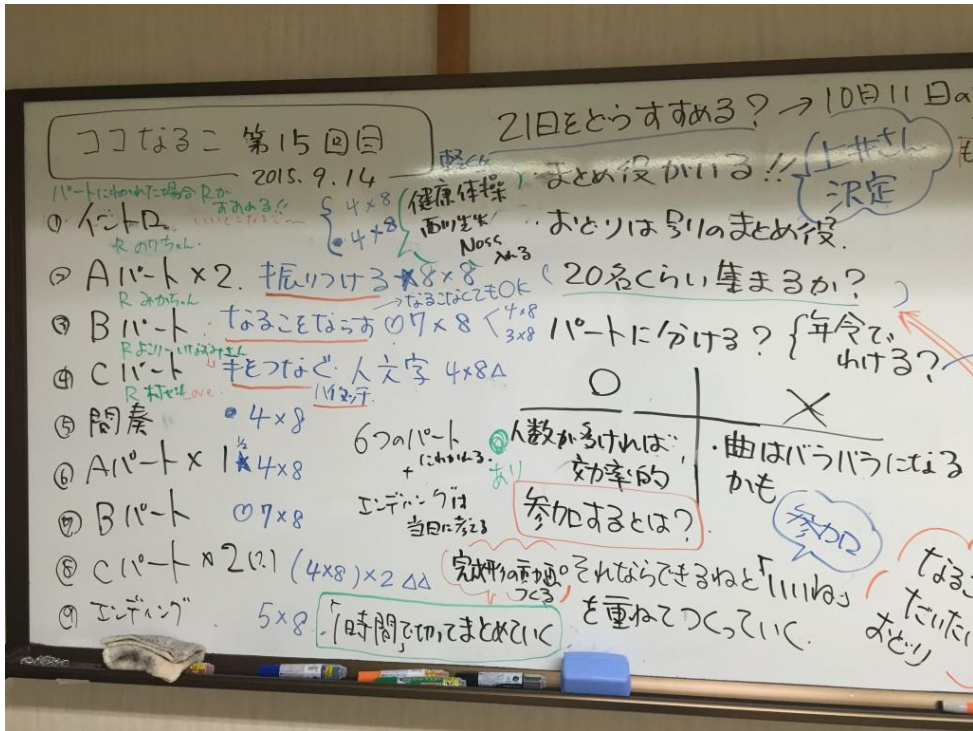 ココなるこ 第15回目
2015.9.14
パートにわかれた場合Rが
すすめる!!
① イントロ
R のりちゃん
4×8
4×8
軽く
健康体操
西川先生
Noss
入れる
② Aパート×2. 振りつける 8×8
R みかちゃん
→なるこなくてもOK
③ Bパート なることをならす ♡7×8 < 4×8
3×8
④ Cパート 手をつなぐ・人文字 4×8△
R 村 Love
ハイタッチ
⑤ 間奏 4×8
⑥ Aパート×1 ½ 4×8
⑦ Bパート ♡7×8
⑧ Cパート×2(?) (4×8)×2 △△
⑨ エンディング 5×8
6つのパート
+ にわかれる.
エンディングは
当日に考える
「1時間」で切ってまとめていく
21日をどうすすめる? → 10月11日の
・まとめ役がいる!!
上井さん
決定
・おどりは号りのまとめ役.
20名くらい集まるか?
パートに分ける? { 年令で
わける?
○ ×
人数が多ければ、
効率的
あり
・曲はバラバラになる
かも
参加するとは?
参加
完成形の動画
つくる
それならできるねと「いいね」
を重ねてつくっていく.
なるこ
だいたい
おどり